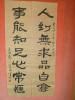 人到無求品自高
事能知足心常愜